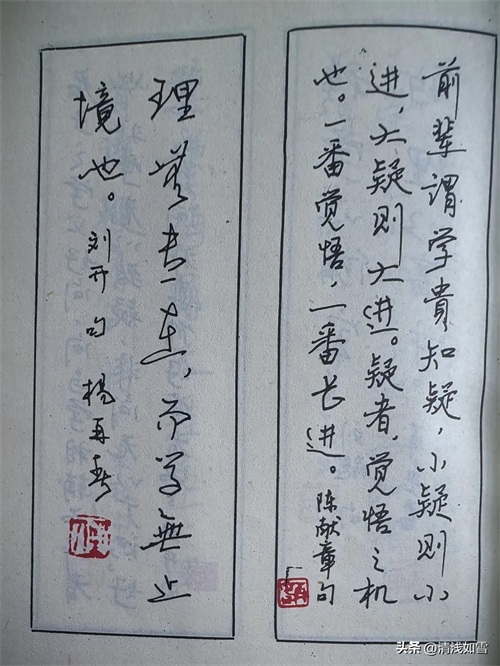 前辈谓学贵知疑，小疑则小
进，大疑则大进。疑者，觉悟之机
也。一番觉悟，一番长进。陈献章句
理无专在，而学無止
境也。刘开句 杨再春
头条 @清浅如雪